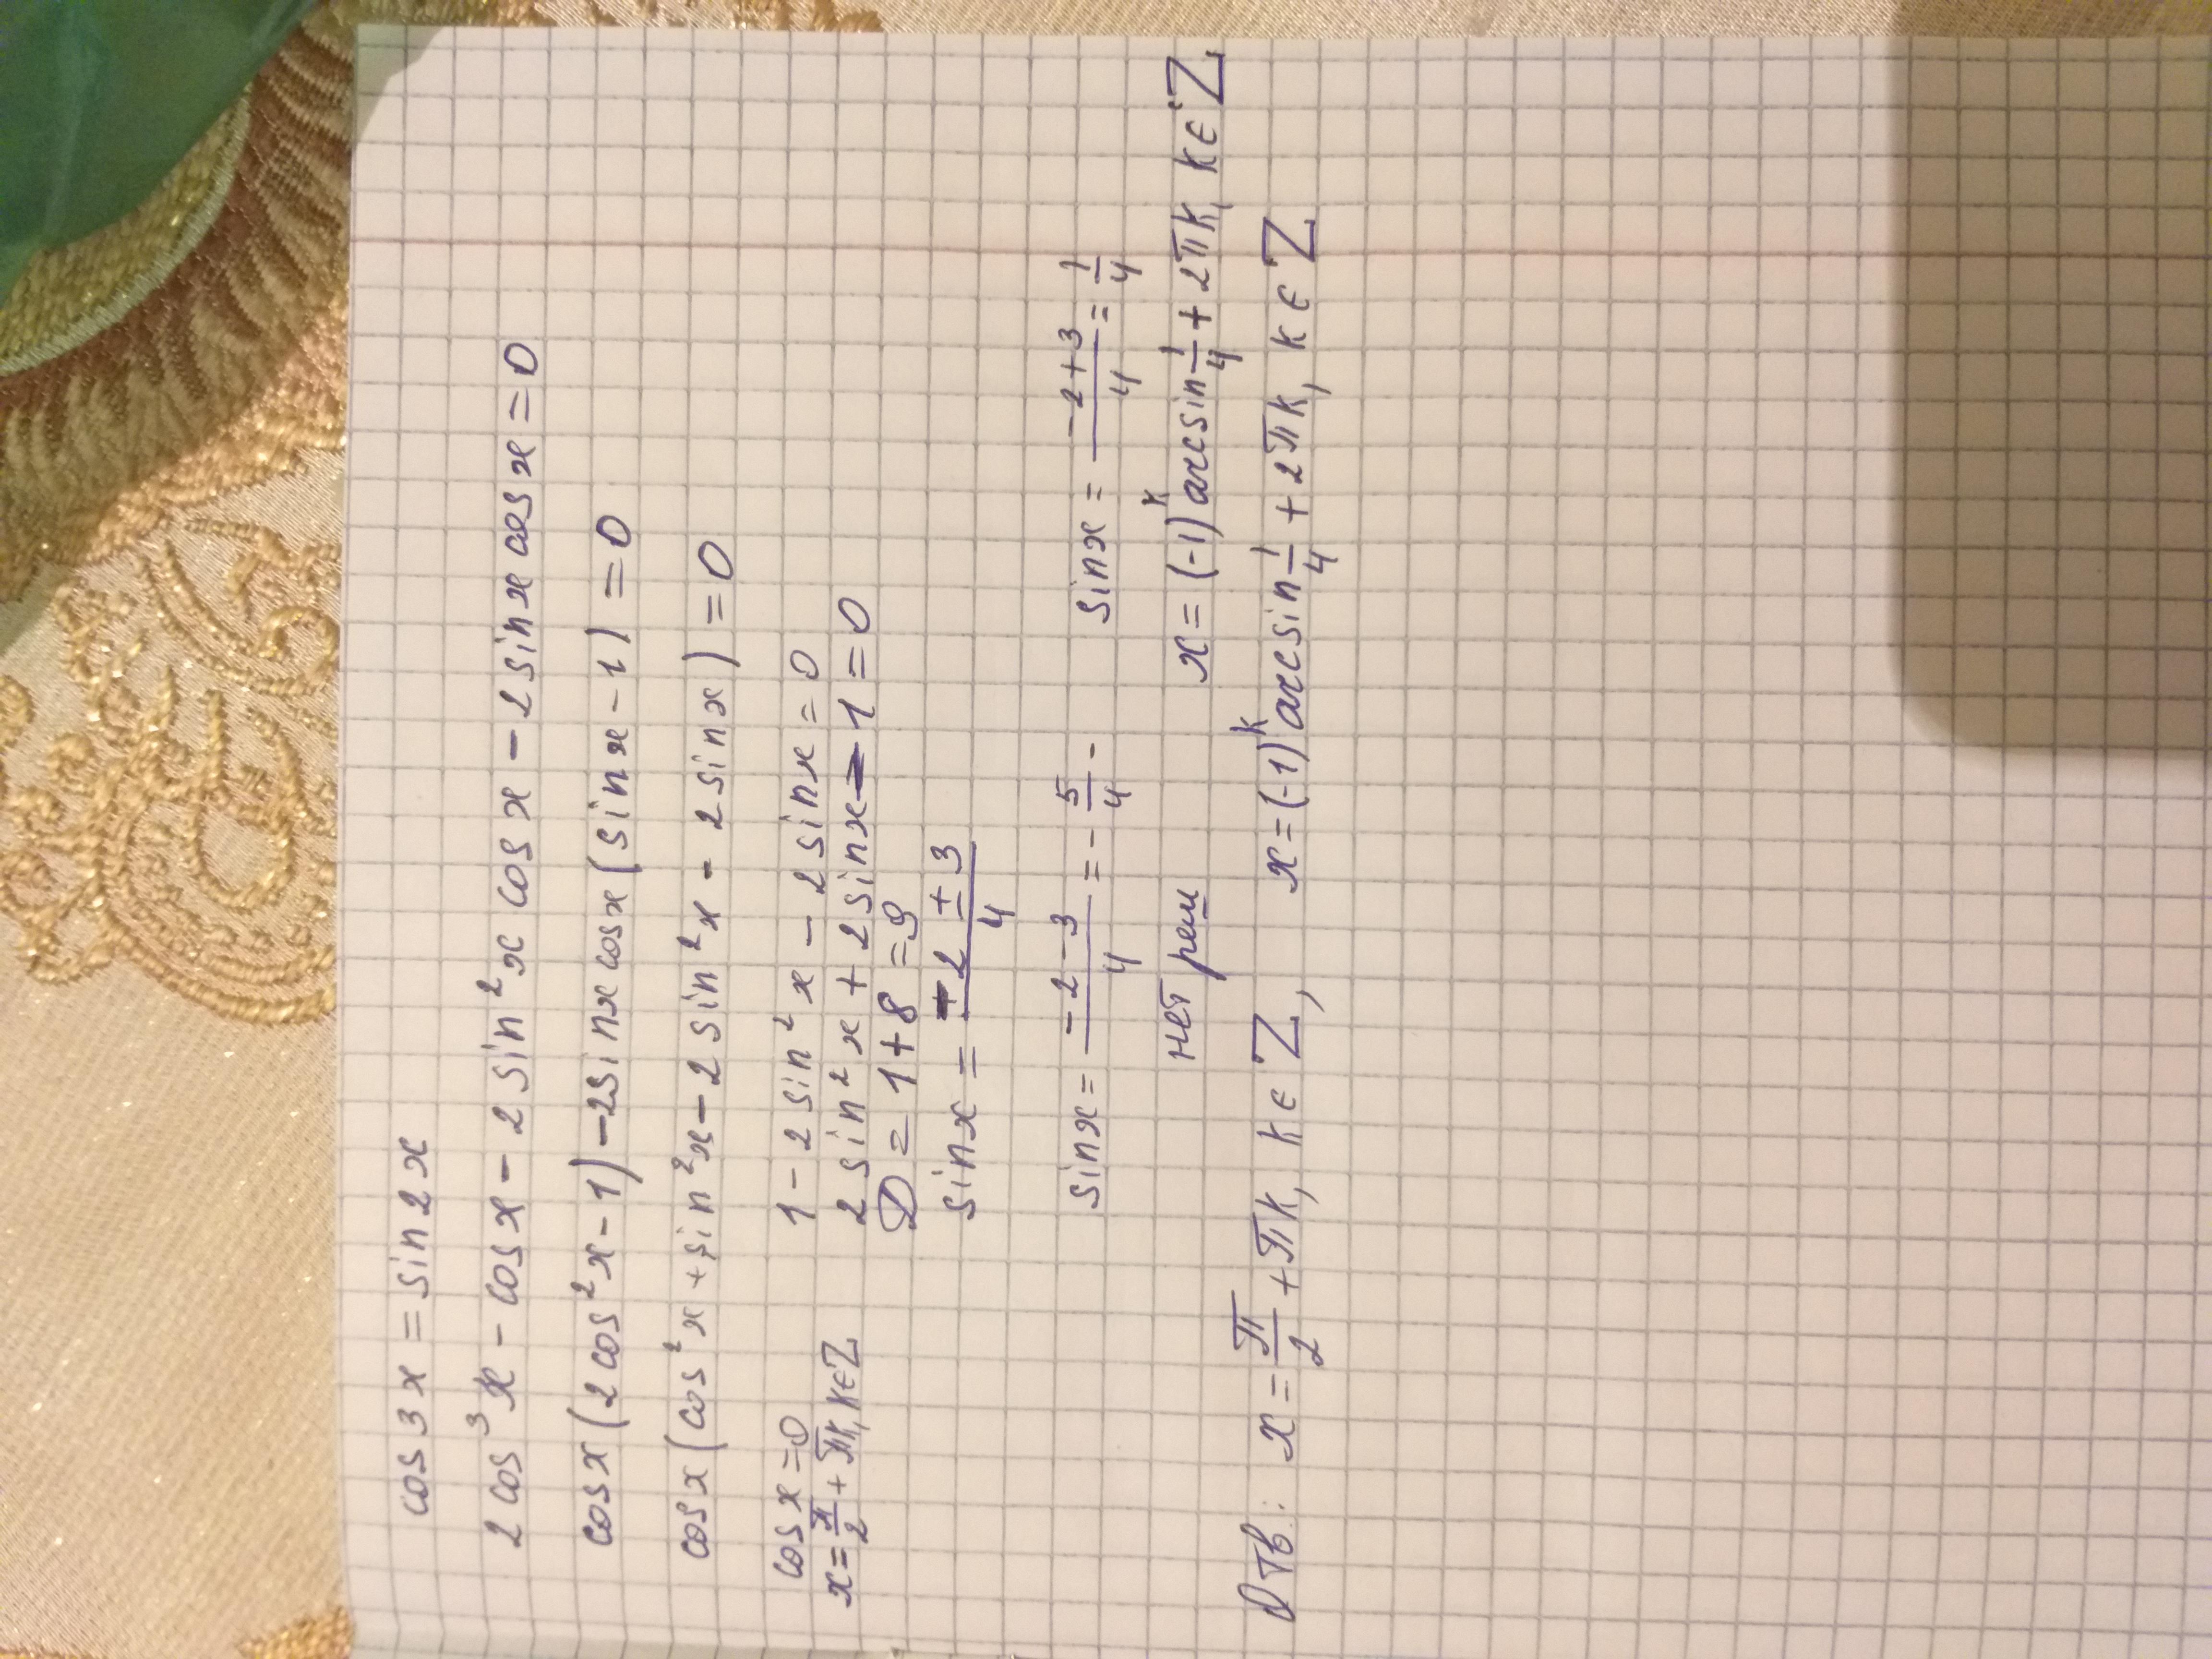 cos3x = sin2x
2cos³x - cosx - 2sin²x cosx - 2sinx cosx = 0
cosx(2cos²x-1) -2sinx cosx(sinx-1) = 0
cosx(cos²x+sin²x-2sin²x-2sinx) = 0
cosx=0 1-2sin²x-2sinx=0
x=π/2+πk, k∈Z 2sin²x+2sinx-1=0
D=1+8=9
sinx = -2±3/4
sinx = -2-3/4 = -5/4 - sinx = -2+3/4 = 1/4
нет реш x=(-1)ᵏarcsin1/4+2πk, k∈Z
Отв: x=π/2+πk, k∈Z, x=(-1)ᵏarcsin1/4+2πk, k∈Z